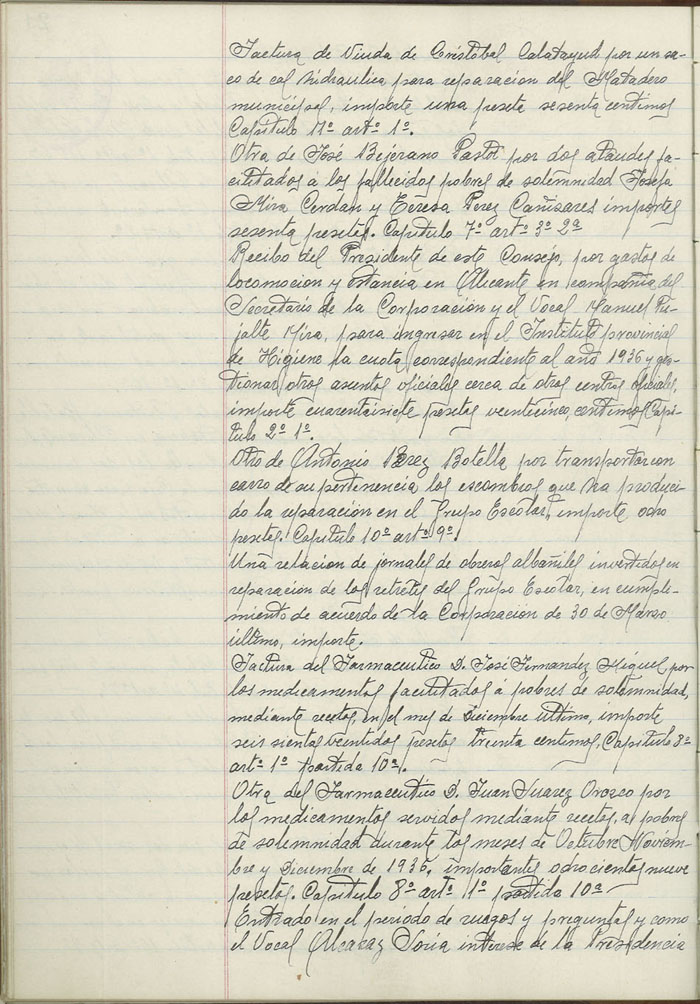 Factura de Viuda de Cristobal Calatayud por un sa-
co de cal hidraulica para reparacion del Matadero
municipal, importe una peseta sesenta centimos
Capitulo 11º artº 1º.
Otra de José Bejerano Pastor por dos ataudes fa-
cilitados a los fallecidos pobres de solemnidad Josefa
Mira Cerdan y Teresa Perez Cañisares importes
sesenta pesetas. Capitulo 7º artº 3º 2ª
Recibo del Presidente de este Consejo, por gastos de
locomocion y estancia en Alicante en compañia del
Secretario de la Corporacion y el Vocal Manuel Pu-
jalte Mira, para ingresar en el Instituto provincial
de Higiene la cuota correspondiente al año 1936 y ges-
tionar otros asuntos oficiales cerca de otros centros oficiales,
importe cuarentaisiete pesetas veinticinco, centimos Capi-
tulo 2º 1º.
Otro de Antonio Perez Botella por transportar con
carro de su pertinencia los escombros que ha produci-
do la reparación en el Grupo Escolar, importe ocho
pesetas. Capitulo 10º artº 9º.
Una relacion de jornales de obreros albañiles invertidos en
reparacion de los retretes del Grupo Escolar, en cumpli-
miento de acuerdo de la Corporacion de 30 de Marzo
último, importe.
Factura del Farmaceutico D. José Fernandez Miguel por
los medicamentos facilitados á pobres de solemnidad,
mediante recetas, en el mes de Diciembre ultimo, importe
seis sientas veentidos pesetas treinta centimos, Capitulo 8º
artº 1º partida 10ª.
Otra del Farmaceutico D. Juan Suarez Orozco por
los medicamentos servidos mediante recetas, a pobres
de solemnidad durante los meses de Octubre Noviem-
bre y Diciembre de 1936, importantes ochocientas nueve
pesetas. Capitulo 8º artº 1º partida 10ª
Entrado en el periodo de ruegos y preguntas y como
el Vocal Alcaraz Soria interese de la Presidencia